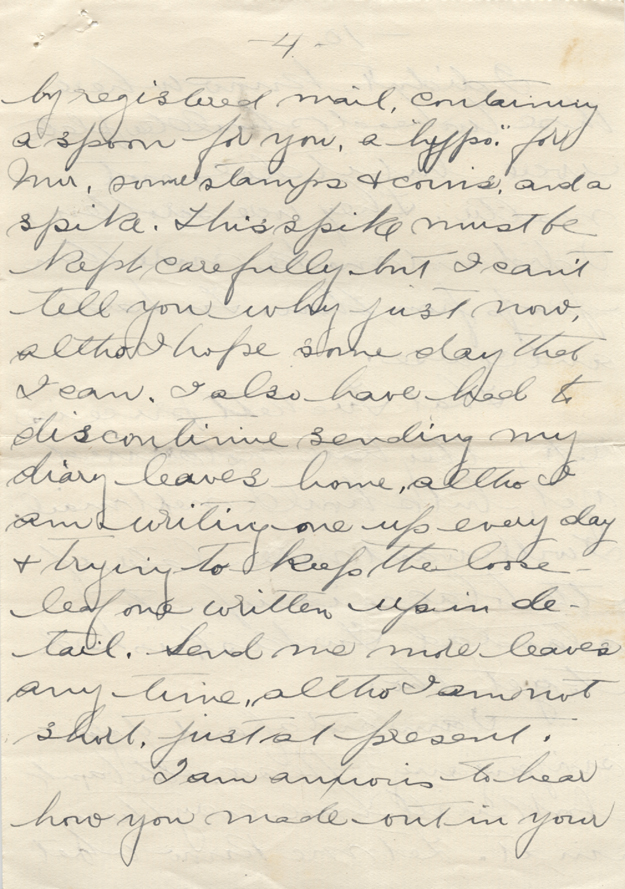 - 4 -
by registered mail, containing
a spoon for you, a "hypo." for
Mur, some stamps & coins, and a
spike. This spike must be
kept carefully but I can't
tell you why just now,
altho I hope some day that
I can. I also have had to
discontinue sending my
diary leaves home, altho I
am writing one up every day
& trying to keep the loose-
leaf one written up in de-
tail. Send me more leaves
any time, altho I am not
short, just at present.
I am anxious to hear
how you made out in your